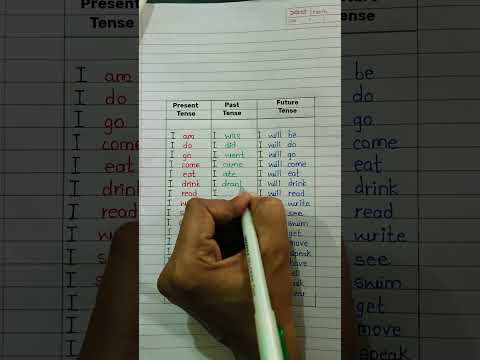 Present
Tense
I am
I do
I go
I come
I eat
I drink
I read
I
I
I
I
I
I
Present Tense Past Tense Future Tense
I am I was I will be
I do I did I will do
I go I went I will go
I come I came I will come
I eat I ate I will eat
I drink I drank I will drink
I read I I will read
I will write
see
swim
get
move
speak
have
Future
Tense
be
do
go
come
eat
drink
read
write
see
swim
get
move
speak